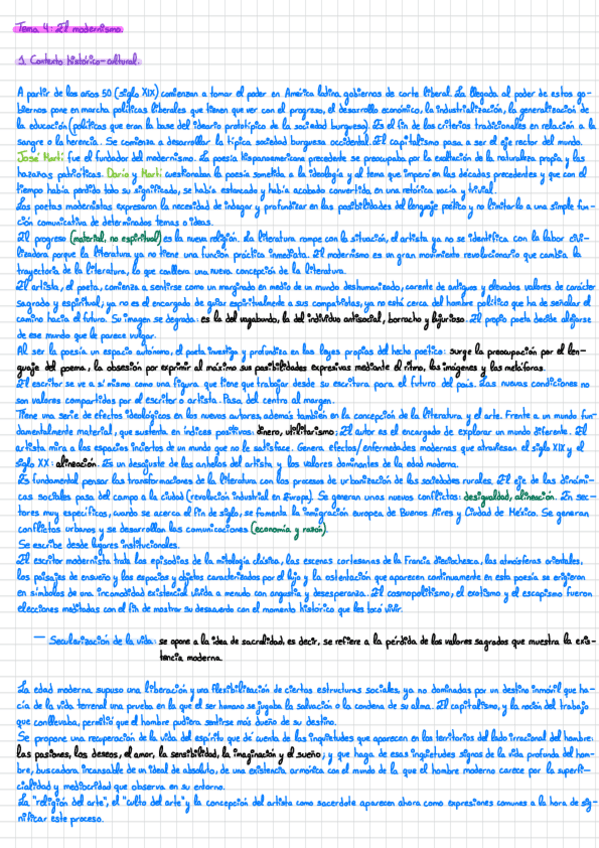 Tema 4: El modernismo.
1. Contexto histórico-cultural.
A partir de los años 50 (siglo XIX) comienzan a tomar el poder en América latina gobiernos de corte liberal. La llegada al poder de estos go-
biernos pone en marcha políticas liberales que tienen que ver con el progreso, el desarrollo económico, la industrialización, la generalización de
la educación (políticas que eran la base del ideario prototípico de la sociedad burguesa). Es el fin de los criterios tradicionales en relación a la
sangre o la herencia. Se comienza a desarrollar la típica sociedad burguesa occidental. El capitalismo pasa a ser el eje rector del mundo.
José Martí fue el fundador del modernismo. La poesía hispanoamericana precedente se preocupaba por la exaltación de la naturaleza propia y las
hazañas patrióticas. Darío y Martí cuestionaban la poesía sometida a la ideología y al tema que imperó en las décadas precedentes y que con el
tiempo había perdido todo su significado, se había estancado y había acabado convertida en una retórica vacía y trivial.
Los poetas modernistas expresaron la necesidad de indagar y profundizar en las posibilidades del lenguaje poético y no limitarlo a una simple fun-
ción comunicativa de determinados temas o ideas.
El progreso (material, no espiritual) es la nueva religión. La literatura rompe con la situación, el artista ya no se identifica con la labor civi-
lizadora porque la literatura ya no tiene una función práctica inmediata. El modernismo es un gran movimiento revolucionario que cambia la
trayectoria de la literatura, lo que conlleva una nueva concepción de la literatura.
El artista, el poeta, comienza a sentirse como un marginado en medio de un mundo deshumanizado, carente de antiguos y elevados valores de carácter
sagrado y espiritual, ya no es el encargado de guiar espiritualmente a sus compatriotas, ya no está cerca del hombre político que ha de señalar el
camino hacia el futuro. Su imagen se degrada: es la del vagabundo, la del individuo antisocial, borracho y lujurioso. El propio poeta decide alejarse
de ese mundo que le parece vulgar.
Al ser la poesía un espacio autónomo, el poeta investiga y profundiza en las leyes propias del hecho poético: surge la preocupación por el len-
guaje del poema, la obsesión por exprimir al máximo sus posibilidades expresivas mediante el ritmo, las imágenes y las metáforas.
El escritor se ve a sí mismo como una figura que tiene que trabajar desde su escritura para el futuro del país. Las nuevas condiciones no
son valores compartidos por el escritor o artista. Pasa del centro al margen.
Tiene una serie de efectos ideológicos en los nuevos autores, además también en la concepción de la literatura y el arte. Frente a un mundo fun-
damentalmente material, que sustenta en índices positivos: dinero, utilitarismo; el autor es el encargado de explorar un mundo diferente. El
artista mira a los espacios inciertos de un mundo que no le satisface. Genera efectos/enfermedades modernas que atraviesan el siglo XIX y el
siglo XX: alineación. Es un desajuste de los anhelos del artista y los valores dominantes de la edad moderna.
Es fundamental pensar las transformaciones de la literatura con los procesos de urbanización de las sociedades rurales. El eje de las dinámi-
cas sociales pasa del campo a la ciudad (revolución industrial en Europa). Se generan unos nuevos conflictos: desigualdad, alineación. En sec-
tores muy específicos, cuando se acerca el fin de siglo, se fomenta la inmigración europea de Buenos Aires y Ciudad de México. Se generan
conflictos urbanos y se desarrollan las comunicaciones (economía y razón).
Se escribe desde lugares institucionales.
El escritor modernista trata los episodios de la mitología clásica, las escenas cortesanas de la Francia dieciochesca, las atmósferas orientales,
los paisajes de ensueño y los espacios y objetos caracterizados por el lujo y la ostentación que aparecen continuamente en esta poesía se erigieron
en símbolos de una incomodidad existencial vivida a menudo con angustia y desesperanza. El cosmopolitismo, el erotismo y el escapismo fueron
elecciones meditadas con el fin de mostrar su desacuerdo con el momento histórico que les tocó vivir.
— Secularización de la vida: se opone a la idea de sacralidad, es decir, se refiere a la pérdida de los valores sagrados que muestra la exis-
tencia moderna.
La edad moderna supuso una liberación y una flexibilización de ciertas estructuras sociales, ya no dominadas por un destino inmóvil que ha-
cía de la vida terrenal una prueba en la que el ser humano se jugaba la salvación o la condena de su alma. El capitalismo, y la noción del trabajo
que conllevaba, permitió que el hombre pudiera sentirse más dueño de su destino.
Se propone una recuperación de la vida del espíritu que dé cuenta de las inquietudes que aparecen en los territorios del lado irracional del hombre:
las pasiones, los deseos, el amor, la sensibilidad, la imaginación y el sueño; y que haga de esas inquietudes signos de la vida profunda del hom-
bre, buscadora incansable de un ideal de absoluto, de una existencia armónica con el mundo de la que el hombre moderno carece por la superfi-
cialidad y mediocridad que observa en su entorno.
La "religión del arte", el "culto del arte" y la concepción del artista como sacerdote aparecen ahora como expresiones comunes a la hora de sig-
nificar este proceso.